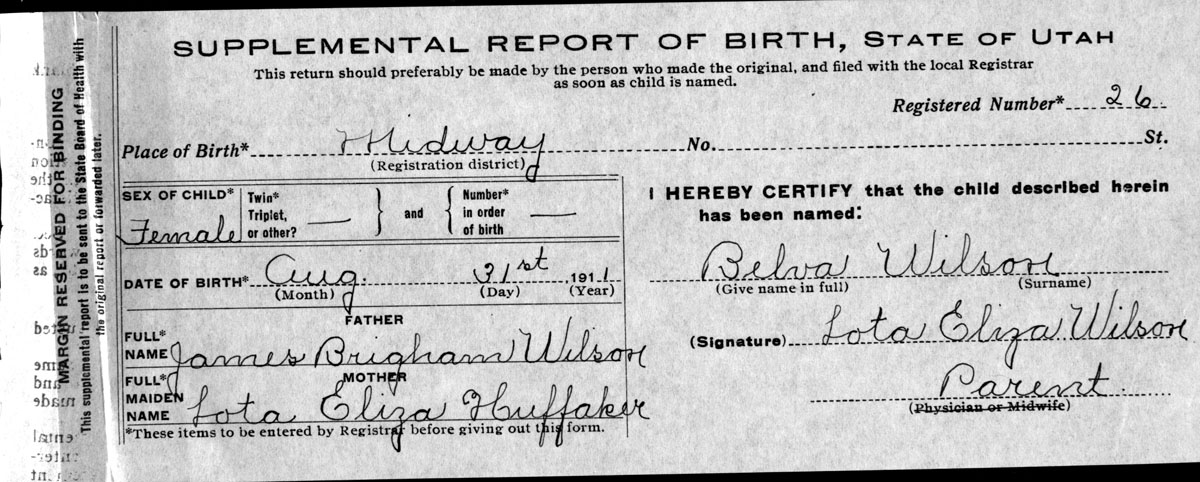 SUPPLEMENTAL REPORT OF BIRTH, STATE OF UTAH
This return should preferably be made by the person who made the original, and filed with the local Registrar
as soon as child is named.
Registered Number* 26
Place of Birth* Midway No. St.
(Registration district)
SEX OF CHILD* Female
Twin*
Triplet,
or other? —
and
Number*
in order
of birth —
DATE OF BIRTH* Aug. 31st 1911
(Month) (Day) (Year)
FATHER
FULL*
NAME James Brigham Wilson
MOTHER
FULL*
MAIDEN
NAME Lota Eliza Huffaker
*These items to be entered by Registrar before giving out this form.
I HEREBY CERTIFY that the child described herein
has been named:
Belva Wilson
(Give name in full) (Surname)
(Signature) Lota Eliza Wilson
Parent.
(Physician or Midwife)
MARGIN RESERVED FOR BINDING
This supplemental report is to be sent to the State Board of Health with
the original report or forwarded later.